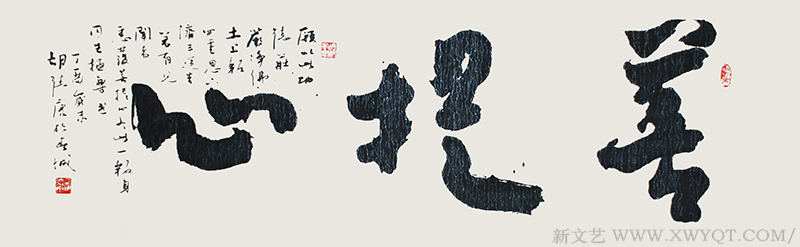 菩提心
願以此功
德莊
嚴淨佛
土上報
四重恩下
濟三途苦
若有見
聞者
悉發菩提心盡此一報身
同生極樂國
丁酉歲末
新文艺 WWW.XWYQT.COM/